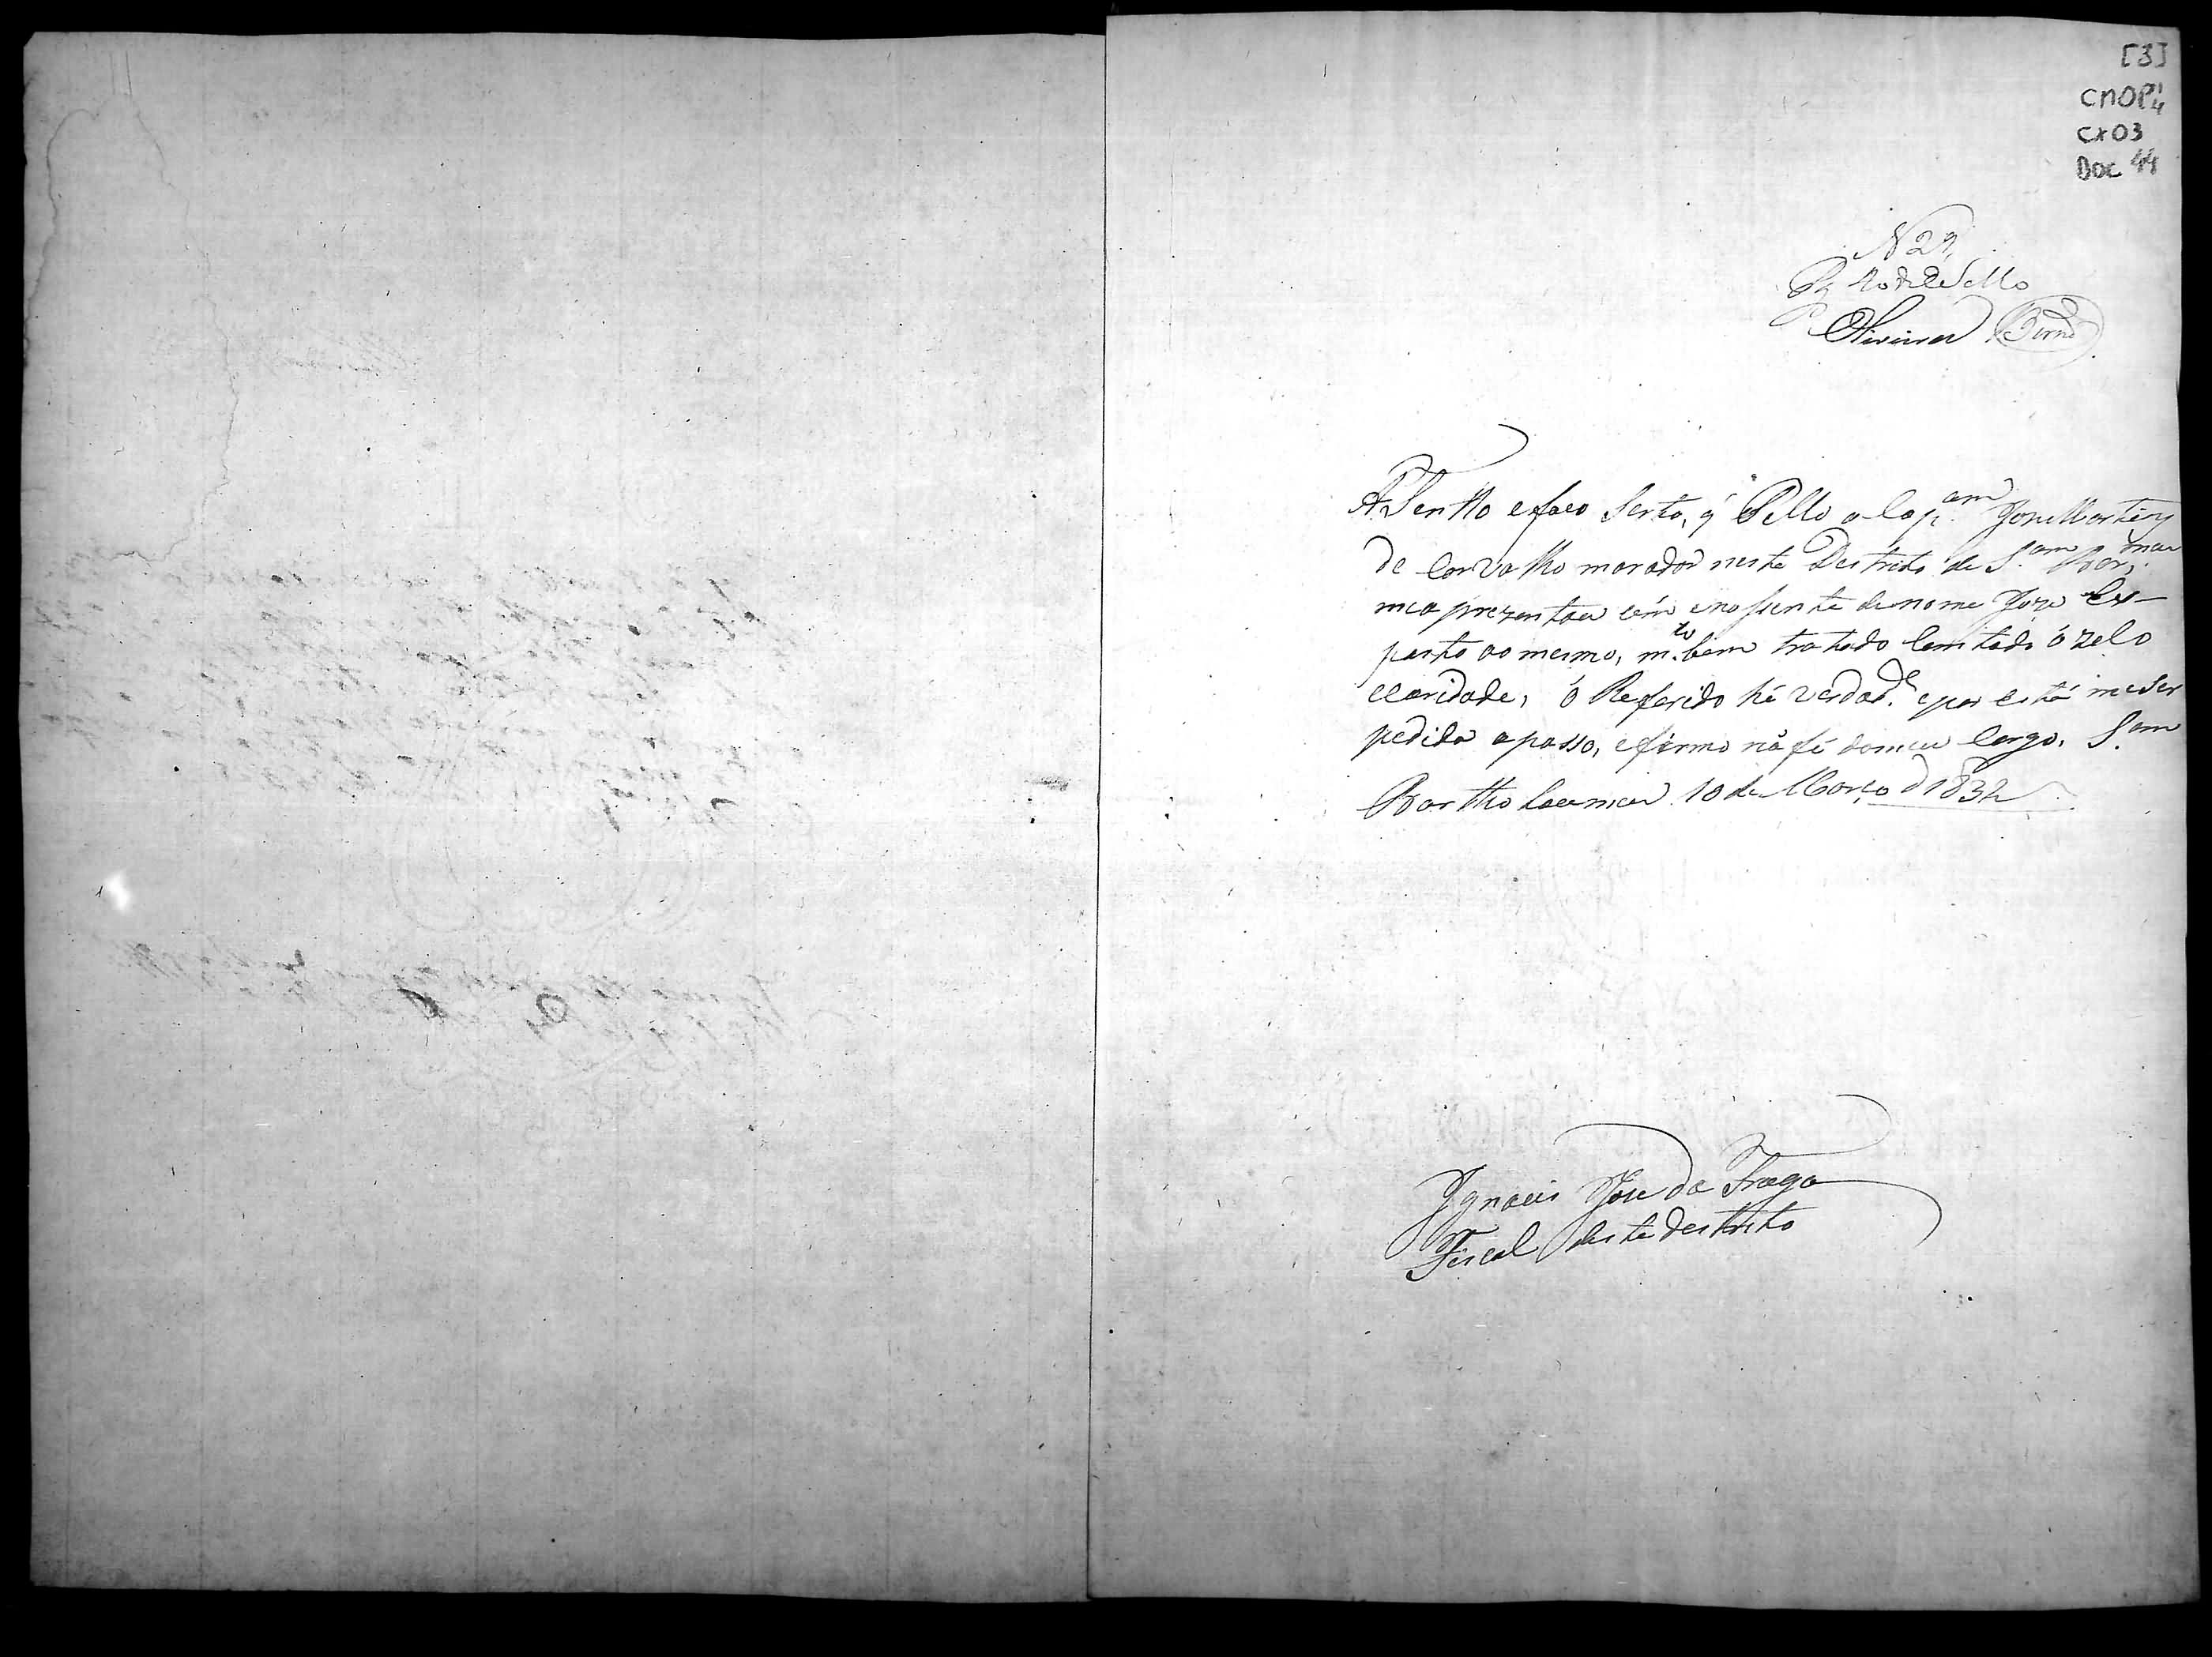 [3]
CMOP 1/4
CX03
Doc 44
N 29
Pg 40 rs de Sello
Oliveira
A Sento e faco Serto, q' Pello o Cap.am Jose Martins
de Carvalho morador neste Destrito de S.am Bar.meu
me aprezentou em inosente de nome Joze Ex-
posto ao mesmo, m.to bem tratado Com todo ó zelo
e caridade, ó Referido hé Verdad.e e por está me ser
pedida a passo, e firmo na fé do meu Cargo. S.am
Bartholameu 10 de Março d 1832
Ignacio Jose da Fraga
Fiscal deste destrito